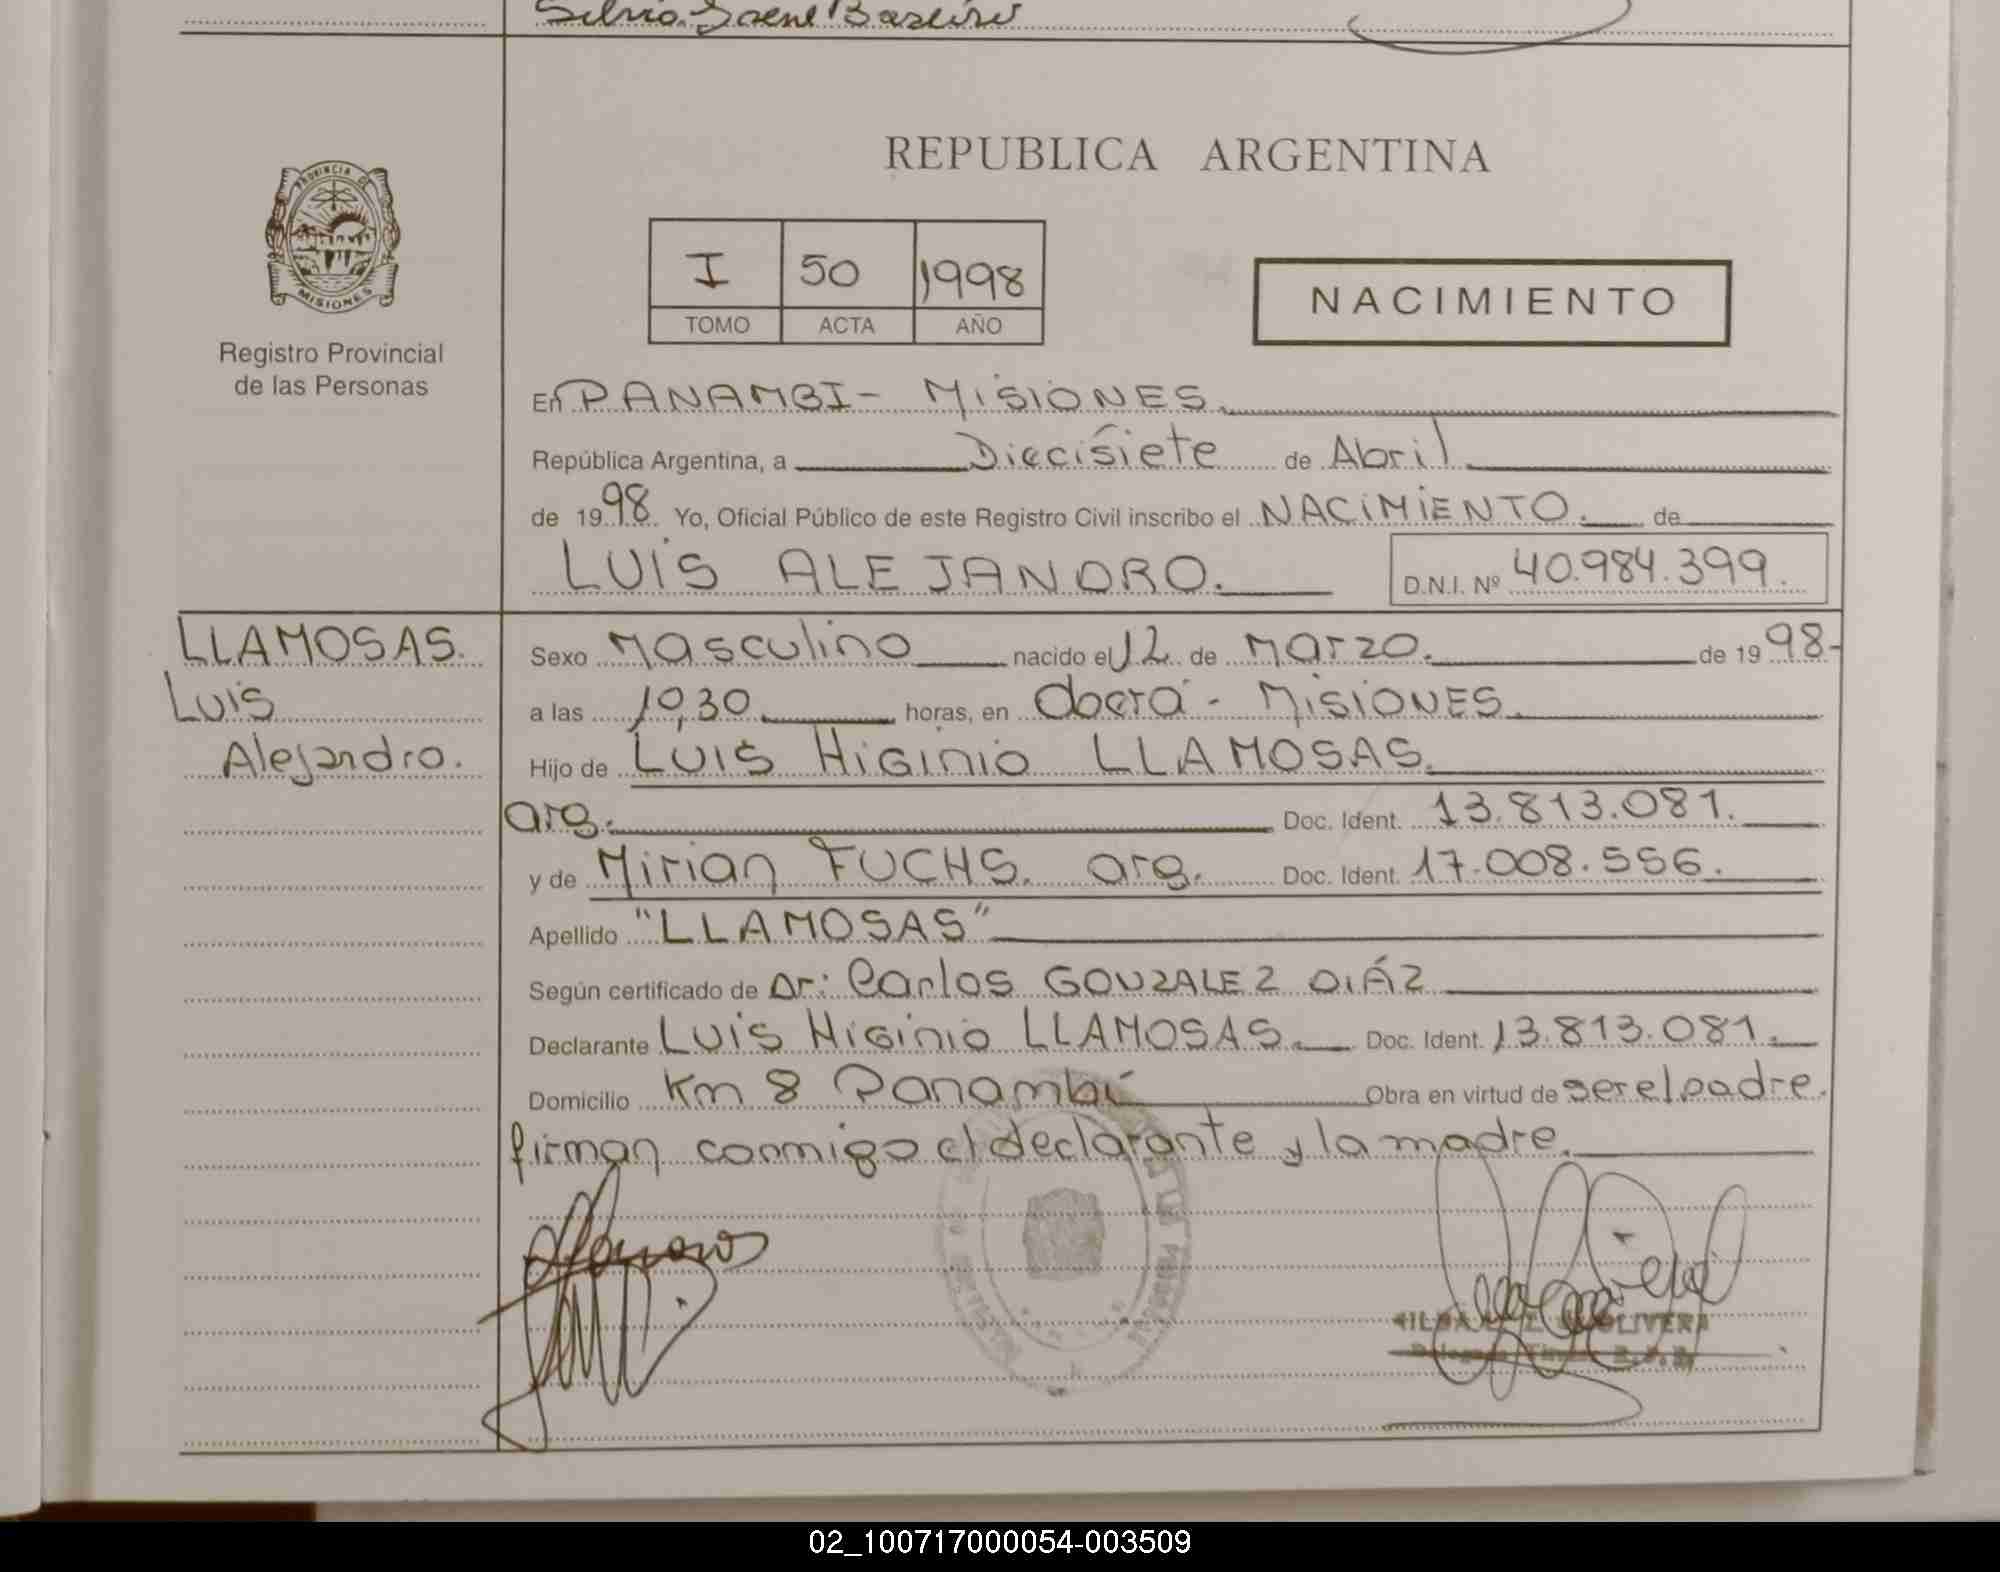 Silvia Irene
REPUBLICA ARGENTINA
PROVINCIA DE
MISIONES
Registro Provincial
de las Personas
I 50 1998
TOMO ACTA AÑO
NACIMIENTO
En PANAMBI - MISIONES.
República Argentina, a Diecisiete de Abril
de 1998. Yo, Oficial Público de este Registro Civil inscribo el NACIMIENTO. de
LUIS ALEJANDRO. D.N.I. Nº 40.984.399.
LLAMOSAS.
Luis
Alejandro.
Sexo Masculino nacido el 12 de Marzo. de 1998-
a las 10,30 horas, en Oberá - MISIONES.
Hijo de LUIS HIGINIO LLAMOSAS.
arg. Doc. Ident. 13.813.081.
y de Mirian FUCHS. arg. Doc. Ident. 17.008.556.
Apellido "LLAMOSAS"
Según certificado de Dr: Carlos GONZALEZ DIÁZ
Declarante LUIS HIGINIO LLAMOSAS. Doc. Ident. 13.813.081.
Domicilio Km 8 Panambí Obra en virtud de ser el padre.
firman conmigo el declarante y la madre.
OLIVERA
02_100717000054-003509